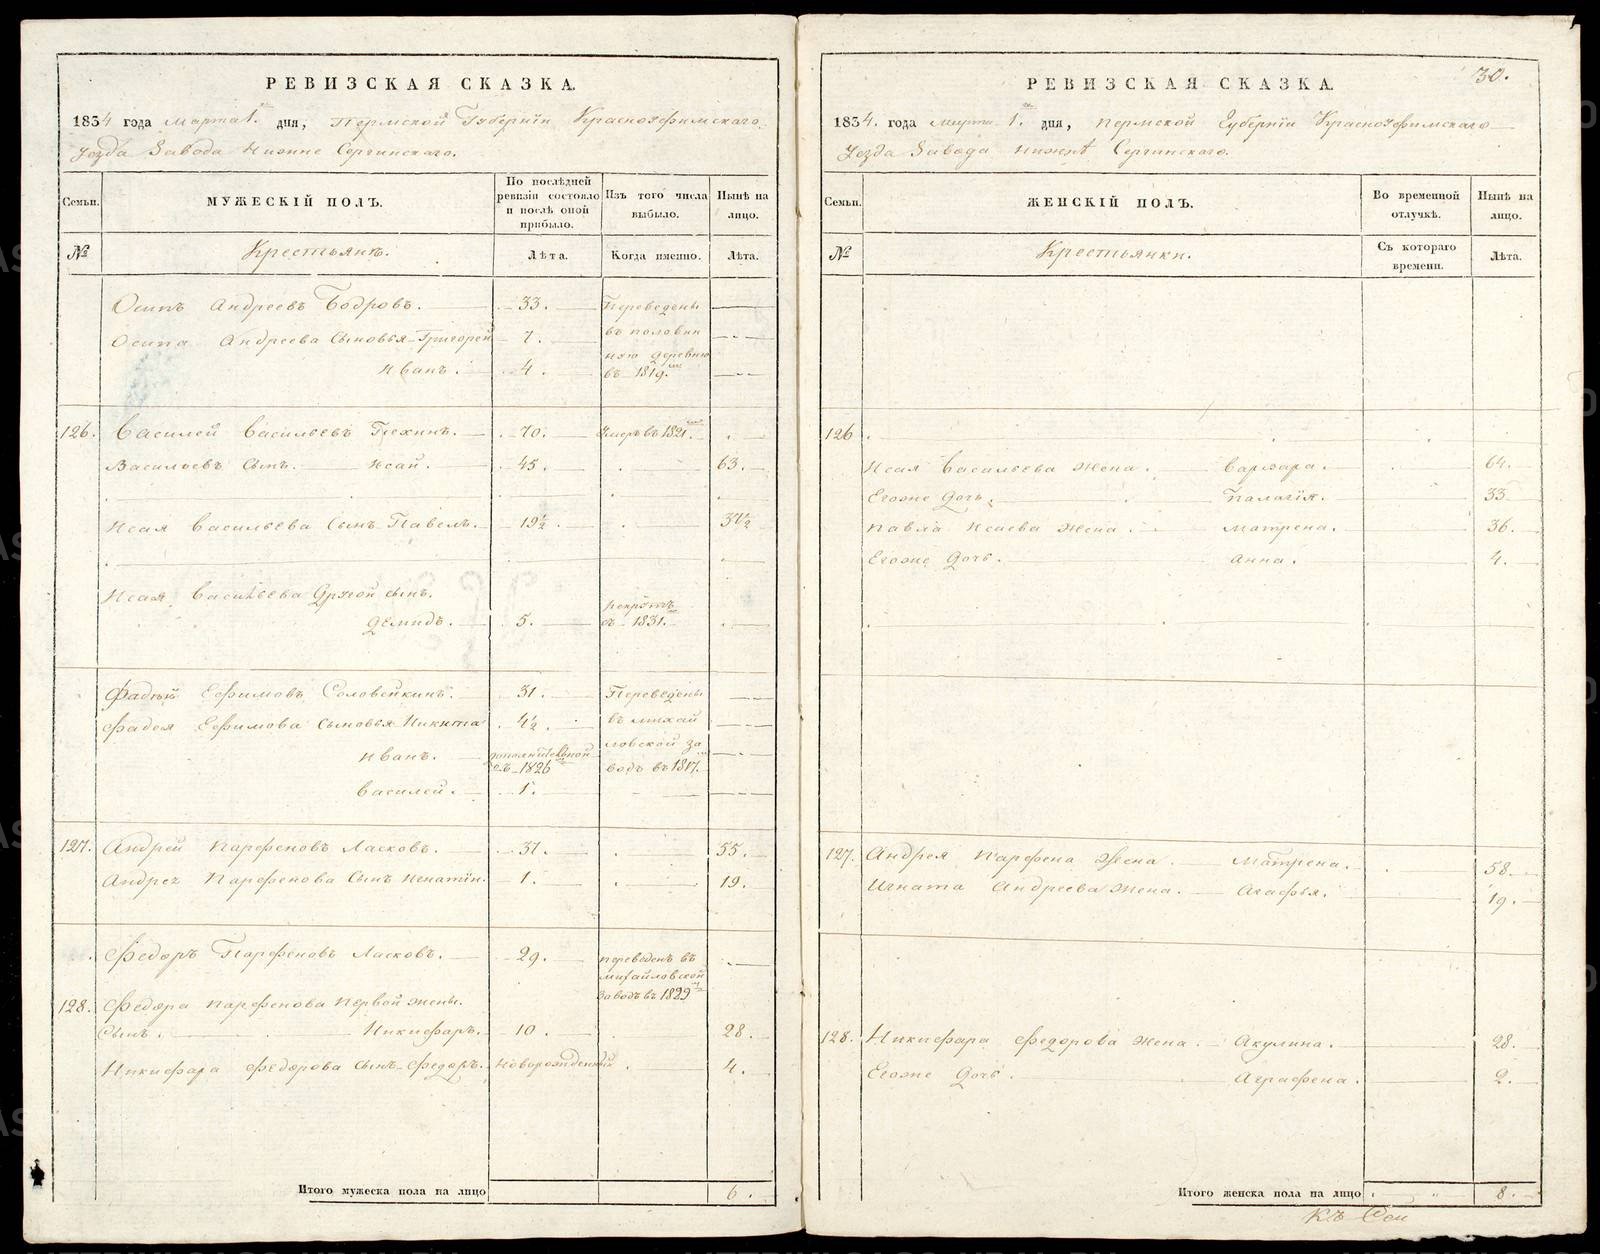 РЕВИЗСКАЯ СКАЗКА.
1834 года марта 1. дня, Пермской Губернїи Красноуфимскаго
Уезда Завода Нижне Сергинскаго.
Семьи. МУЖЕСКІЙ ПОЛЪ. По послѣдней ревизіи состояло и послѣ оной прибыло. Изъ того числа выбыло. Нынѣ на лицо.
№ Крестьянъ. Лѣта. Когда именно. Лѣта.
Осипъ Андреевъ Бодровъ. 33. Переведены
Осипа Андреева Сыновья Григорей 7. въ половин
ную деревню
Иванъ. 4. въ 1819.
126. Василей Васильевъ Пехинъ. 70. Умеръ въ 1821.
Васильевъ Сынъ. Исай. 45. 63.
Исая Васильева Сынъ Павелъ. 19½. 37½
Исая Васильева Другой сынъ. рекрутъ
Демидъ. 5. въ 1831.
Фадѣй Ефимовъ Соловейкинъ. 31. Переведены
Фадея Ефимова Сыновья Никита 4½. въ михай
Иванъ. 1826 ловской за
водъ въ 1817.
Василей. 1.
127. Андрей Парфеновъ Ласковъ. 37. 55.
Андрея Парфенова Сынъ Игнатїй. 1. 19.
Федоръ Парфеновъ Ласковъ. 29. переведенъ въ
михайловской
заводъ въ 1829
128. Федора Парфенова Первой жены.
Сынъ. Никифаръ. 10. 28.
Никифара Федорова Сынъ Федоръ. новорожденный 4.
Итого мужеска пола на лицо 6.
30.
РЕВИЗСКАЯ СКАЗКА.
1834. года марта 1. дня, Пермской Губернїи Красноуфимскаго
Уезда Завода Нижне Сергинскаго.
Семьи. ЖЕНСКІЙ ПОЛЪ. Во временной отлучкѣ. Нынѣ на лицо.
№ Крестьянки. Съ котораго времени. Лѣта.
126
Исая Васильева жена. Варвара. 64.
Егоже Дочь. Палагїя. 33
Павла Исаева жена. Матрена. 36.
Егоже Дочь. Анна. 4.
127. Андрея Парфена Жена. Матрена. 58.
Игната Андреева жена. Агафья. 19.
128. Никифара Федорова жена. Акулина. 28.
Егоже Дочь. Аграфена. 2.
Итого женска пола на лицо 8.
Къ Сей